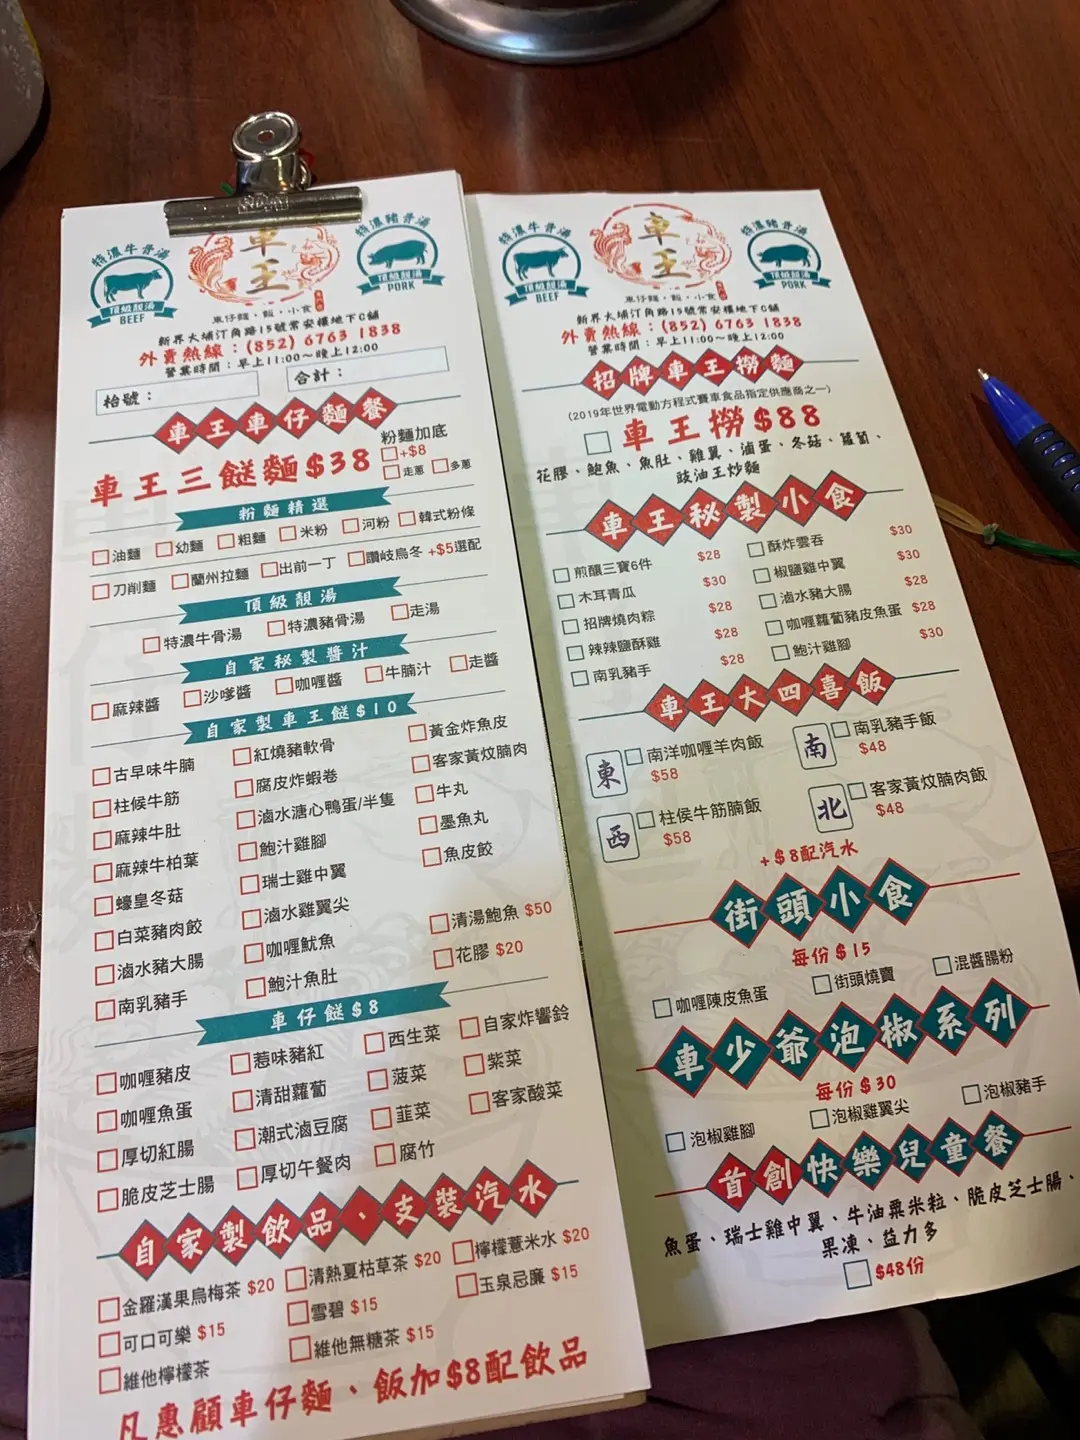 特濃牛骨湯
頂級靚湯
BEEF
車王
特濃豬骨湯
頂級靚湯
PORK
車仔麵・飯・小食
新界大埔汀角路15號常安樓地下C舖
外賣熱線：(852) 6763 1838
營業時間：早上11:00～晚上12:00
枱號：
合計：
車王車仔麵餐
車王三餸麵$38
粉麵加底
+$8
走蔥 多蔥
粉麵精選
油麵 幼麵 粗麵 米粉 河粉 韓式粉條
刀削麵 蘭州拉麵 出前一丁 讚岐烏冬 +$5選配
頂級靚湯
特濃牛骨湯 特濃豬骨湯 走湯
自家秘製醬汁
麻辣醬 沙嗲醬 咖喱醬 牛腩汁 走醬
自家製車王餸$10
古早味牛腩 紅燒豬軟骨 黃金炸魚皮
柱候牛筋 腐皮炸蝦卷 客家黃炆腩肉
麻辣牛肚 滷水溏心鴨蛋/半隻 牛丸
麻辣牛柏葉 鮑汁雞腳 墨魚丸
蠔皇冬菇 瑞士雞中翼 魚皮餃
白菜豬肉餃 滷水雞翼尖
滷水豬大腸 咖喱魷魚 清湯鮑魚 $50
南乳豬手 鮑汁魚肚 花膠 $20
車仔餸$8
咖喱豬皮 惹味豬紅 西生菜 自家炸響鈴
咖喱魚蛋 清甜蘿蔔 菠菜 紫菜
厚切紅腸 潮式滷豆腐 韮菜 客家酸菜
脆皮芝士腸 厚切午餐肉 腐竹
自家製飲品、支裝汽水
金羅漢果烏梅茶 $20 清熱夏枯草茶 $20 檸檬薏米水 $20
可口可樂 $15 雪碧 $15 玉泉忌廉 $15
維他檸檬茶 維他無糖茶 $15
凡惠顧車仔麵、飯加$8配飲品
特濃牛骨湯
頂級靚湯
BEEF
車王
特濃豬骨湯
頂級靚湯
PORK
車仔麵・飯・小食
新界大埔汀角路15號常安樓地下C舖
外賣熱線：(852) 6763 1838
營業時間：早上11:00～晚上12:00
招牌車王撈麵
(2019年世界電動方程式賽車食品指定供應商之一)
車王撈$88
花膠、鮑魚、魚肚、雞翼、滷蛋、冬菇、蘿蔔、
豉油王炒麵
車王秘製小食
煎釀三寶6件 $28 酥炸雲吞 $30
木耳青瓜 $30 椒鹽雞中翼 $30
招牌燒肉粽 $28 滷水豬大腸 $28
辣辣鹽酥雞 $28 咖喱蘿蔔豬皮魚蛋 $28
南乳豬手 $28 鮑汁雞腳 $30
車王大四喜飯
東 南洋咖喱羊肉飯 $58
南 南乳豬手飯 $48
西 柱侯牛筋腩飯 $58
北 客家黃炆腩肉飯 $48
+$8配汽水
街頭小食
每份$15
咖喱陳皮魚蛋 街頭燒賣 混醬腸粉
車少爺泡椒系列
每份$30
泡椒雞腳 泡椒雞翼尖 泡椒豬手
首創快樂兒童餐
魚蛋、瑞士雞中翼、牛油粟米粒、脆皮芝士腸、
果凍、益力多
$48份